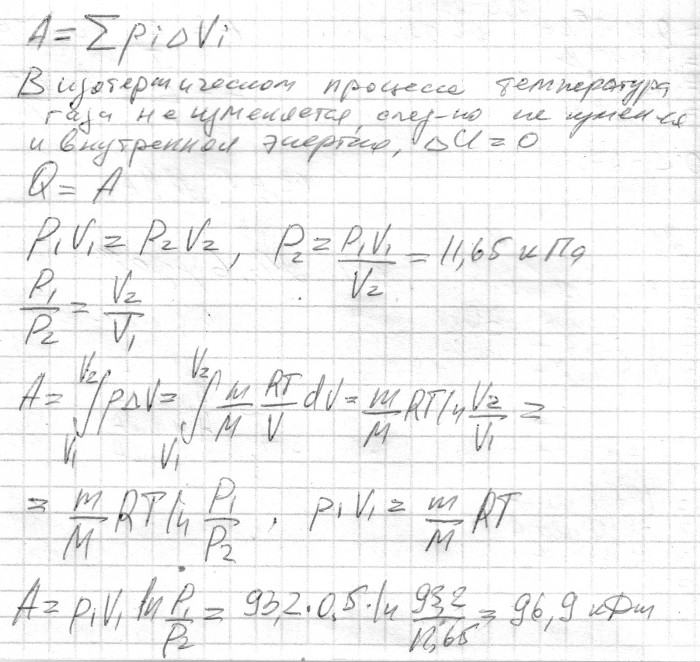 A = Σ pᵢ ΔVᵢ
В изотермическом процессе температура
газа не изменяется, след-но не изменяся
и внутренняя энергия, ΔU = 0
Q = A
P₁V₁ = P₂V₂, P₂ = P₁V₁/V₂ = 11,65 кПа
P₁/P₂ = V₂/V₁
A = ∫_{V₁}^{V₂} pΔV = ∫_{V₁}^{V₂} m/M RT/V dV = m/M RT ln V₂/V₁ =
= m/M RT ln P₁/P₂, p₁V₁ = m/M RT
A = p₁V₁ ln P₁/P₂ = 93,2·0,5·ln 93,2/11,65 = 96,9 кДж